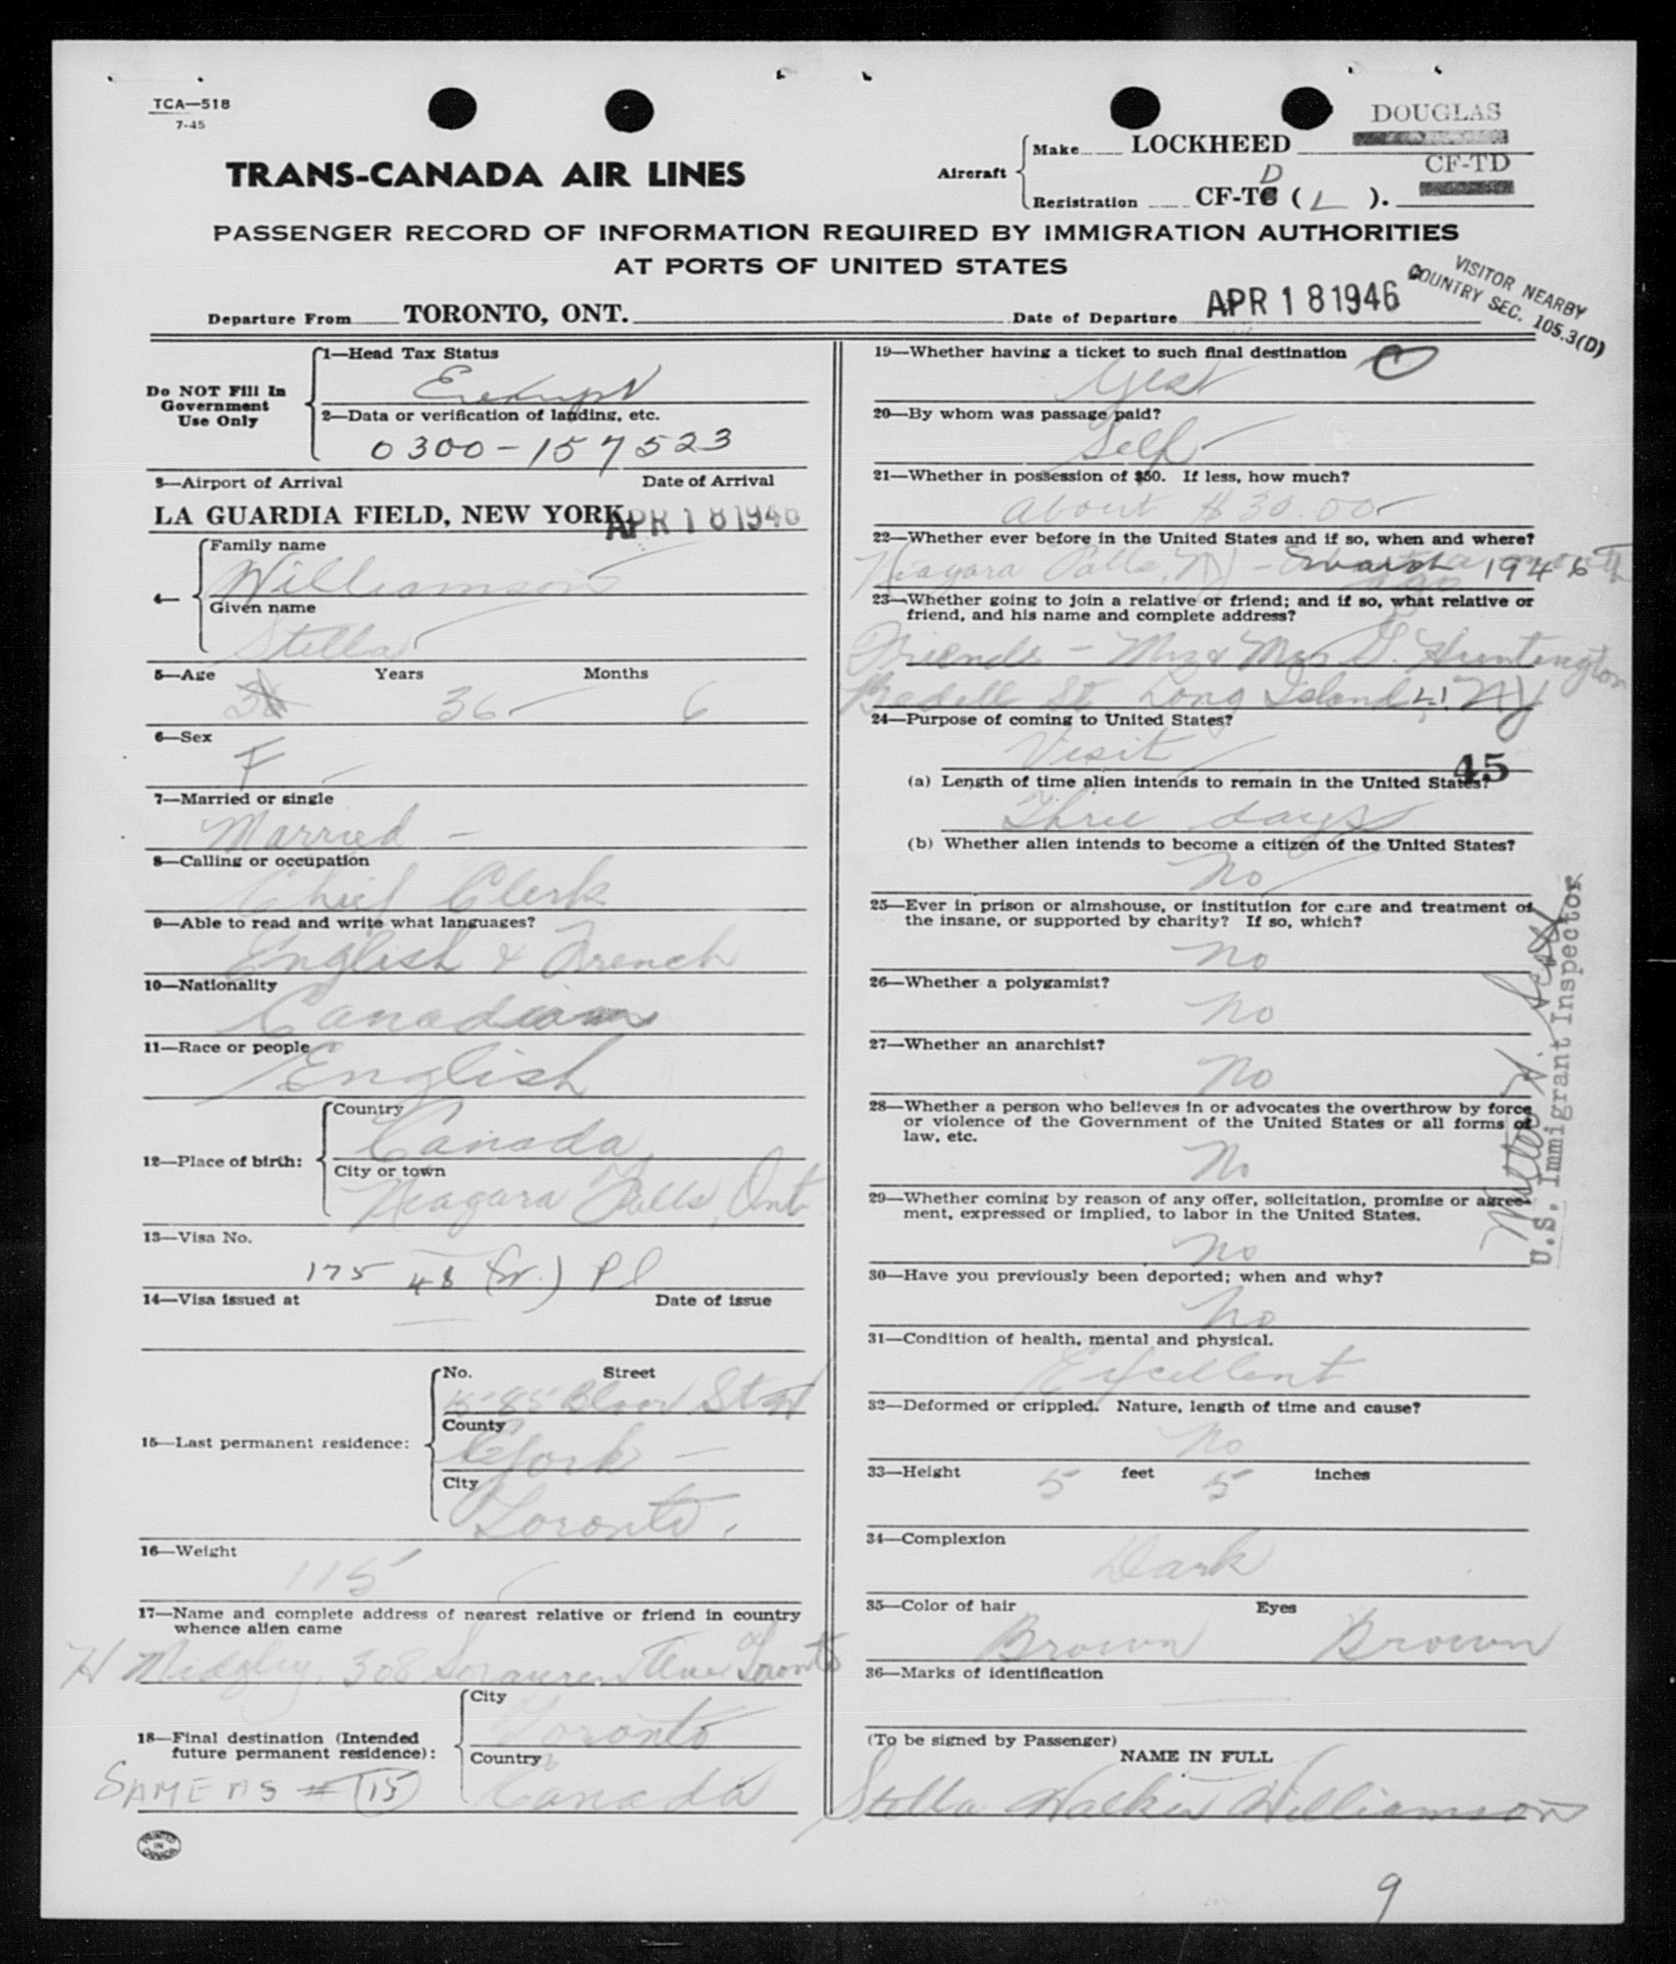 TCA—518
7-45
DOUGLAS
Aircraft
Make LOCKHEED
CF-TD
TRANS-CANADA AIR LINES
D
Registration CF-TC ( L ).
PASSENGER RECORD OF INFORMATION REQUIRED BY IMMIGRATION AUTHORITIES
AT PORTS OF UNITED STATES
VISITOR NEARBY
COUNTRY SEC. 105.3(D)
Departure From TORONTO, ONT.
Date of Departure APR 18 1946
Do NOT Fill In
Government
Use Only
1—Head Tax Status
Exempt
2—Data or verification of landing, etc.
0300-157523
3—Airport of Arrival Date of Arrival
LA GUARDIA FIELD, NEW YORK APR 18 1946
4—
Family name
Williamson
Given name
Stella
5—Age Years Months
36 6
6—Sex
F
7—Married or single
Married
8—Calling or occupation
Chief Clerk
9—Able to read and write what languages?
English & French
10—Nationality
Canadian
11—Race or people
English
12—Place of birth:
Country
Canada
City or town
Niagara Falls, Ont
13—Visa No.
175 48 (Sr.) Pl
14—Visa issued at Date of issue
15—Last permanent residence:
No. Street
Bloor St W
County
York
City
Toronto
16—Weight
115
17—Name and complete address of nearest relative or friend in country
whence alien came
H Midgley 308 Sorauren Ave Toronto
18—Final destination (Intended
future permanent residence):
SAME AS # 15
City
Toronto
Country
Canada
PRINTED
IN
CANADA
19—Whether having a ticket to such final destination
Yes
20—By whom was passage paid?
Self
21—Whether in possession of $50. If less, how much?
About $30.00
22—Whether ever before in the United States and if so, when and where?
Niagara Falls, NY - March 1946
23—Whether going to join a relative or friend; and if so, what relative or
friend, and his name and complete address?
Friends - Mr & Mrs G. Huntington
Bedell St. Long Island, NY
24—Purpose of coming to United States?
Visit
45
(a) Length of time alien intends to remain in the United States?
Three days
(b) Whether alien intends to become a citizen of the United States?
No
25—Ever in prison or almshouse, or institution for care and treatment of
the insane, or supported by charity? If so, which?
No
26—Whether a polygamist?
No
27—Whether an anarchist?
No
28—Whether a person who believes in or advocates the overthrow by force
or violence of the Government of the United States or all forms of
law, etc.
No
29—Whether coming by reason of any offer, solicitation, promise or agree-
ment, expressed or implied, to labor in the United States.
No
30—Have you previously been deported; when and why?
No
31—Condition of health, mental and physical.
Excellent
32—Deformed or crippled. Nature, length of time and cause?
No
33—Height 5 feet 5 inches
34—Complexion
Dark
35—Color of hair Eyes
Brown Brown
36—Marks of identification
(To be signed by Passenger)
NAME IN FULL
Stella Walker Williamson
U.S. Immigrant Inspector
9